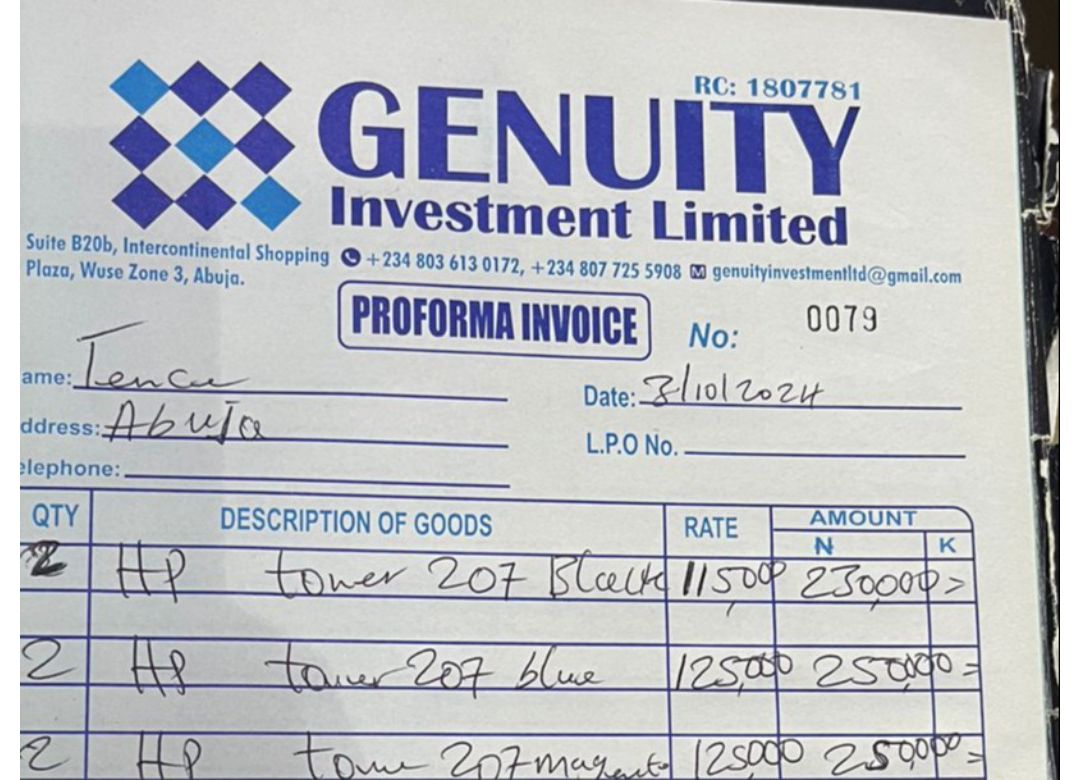 RC: 1807781
GENUITY
Investment Limited
Suite B20b, Intercontinental Shopping
Plaza, Wuse Zone 3, Abuja.
+234 803 613 0172, +234 807 725 5908 genuityinvestmentltd@gmail.com
PROFORMA INVOICE No: 0079
ame: Date: 3/10/2024
ddress: Abuja L.P.O No.
elephone:
QTY DESCRIPTION OF GOODS RATE AMOUNT
N K
2 HP toner 207 Black 115,000 230,000=
2 HP toner 207 blue 125,000 250,000=
2 HP tone 207 magenta 125,000 250,000=